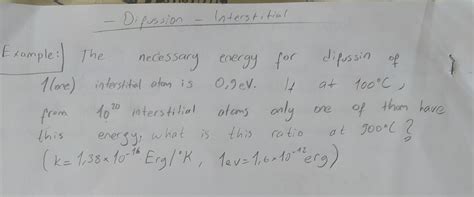 - Difussion - Interstitial
Example: The necessary energy for difussin of
1(one) interstitial atom is 0,9eV. If at 100°C,
from 10²⁰ interstitial atoms only one of them have
this energy, what is this ratio at 900°C?
(k= 1,38×10⁻¹⁶ Erg/°K, 1ev=1,6×10⁻¹² erg)